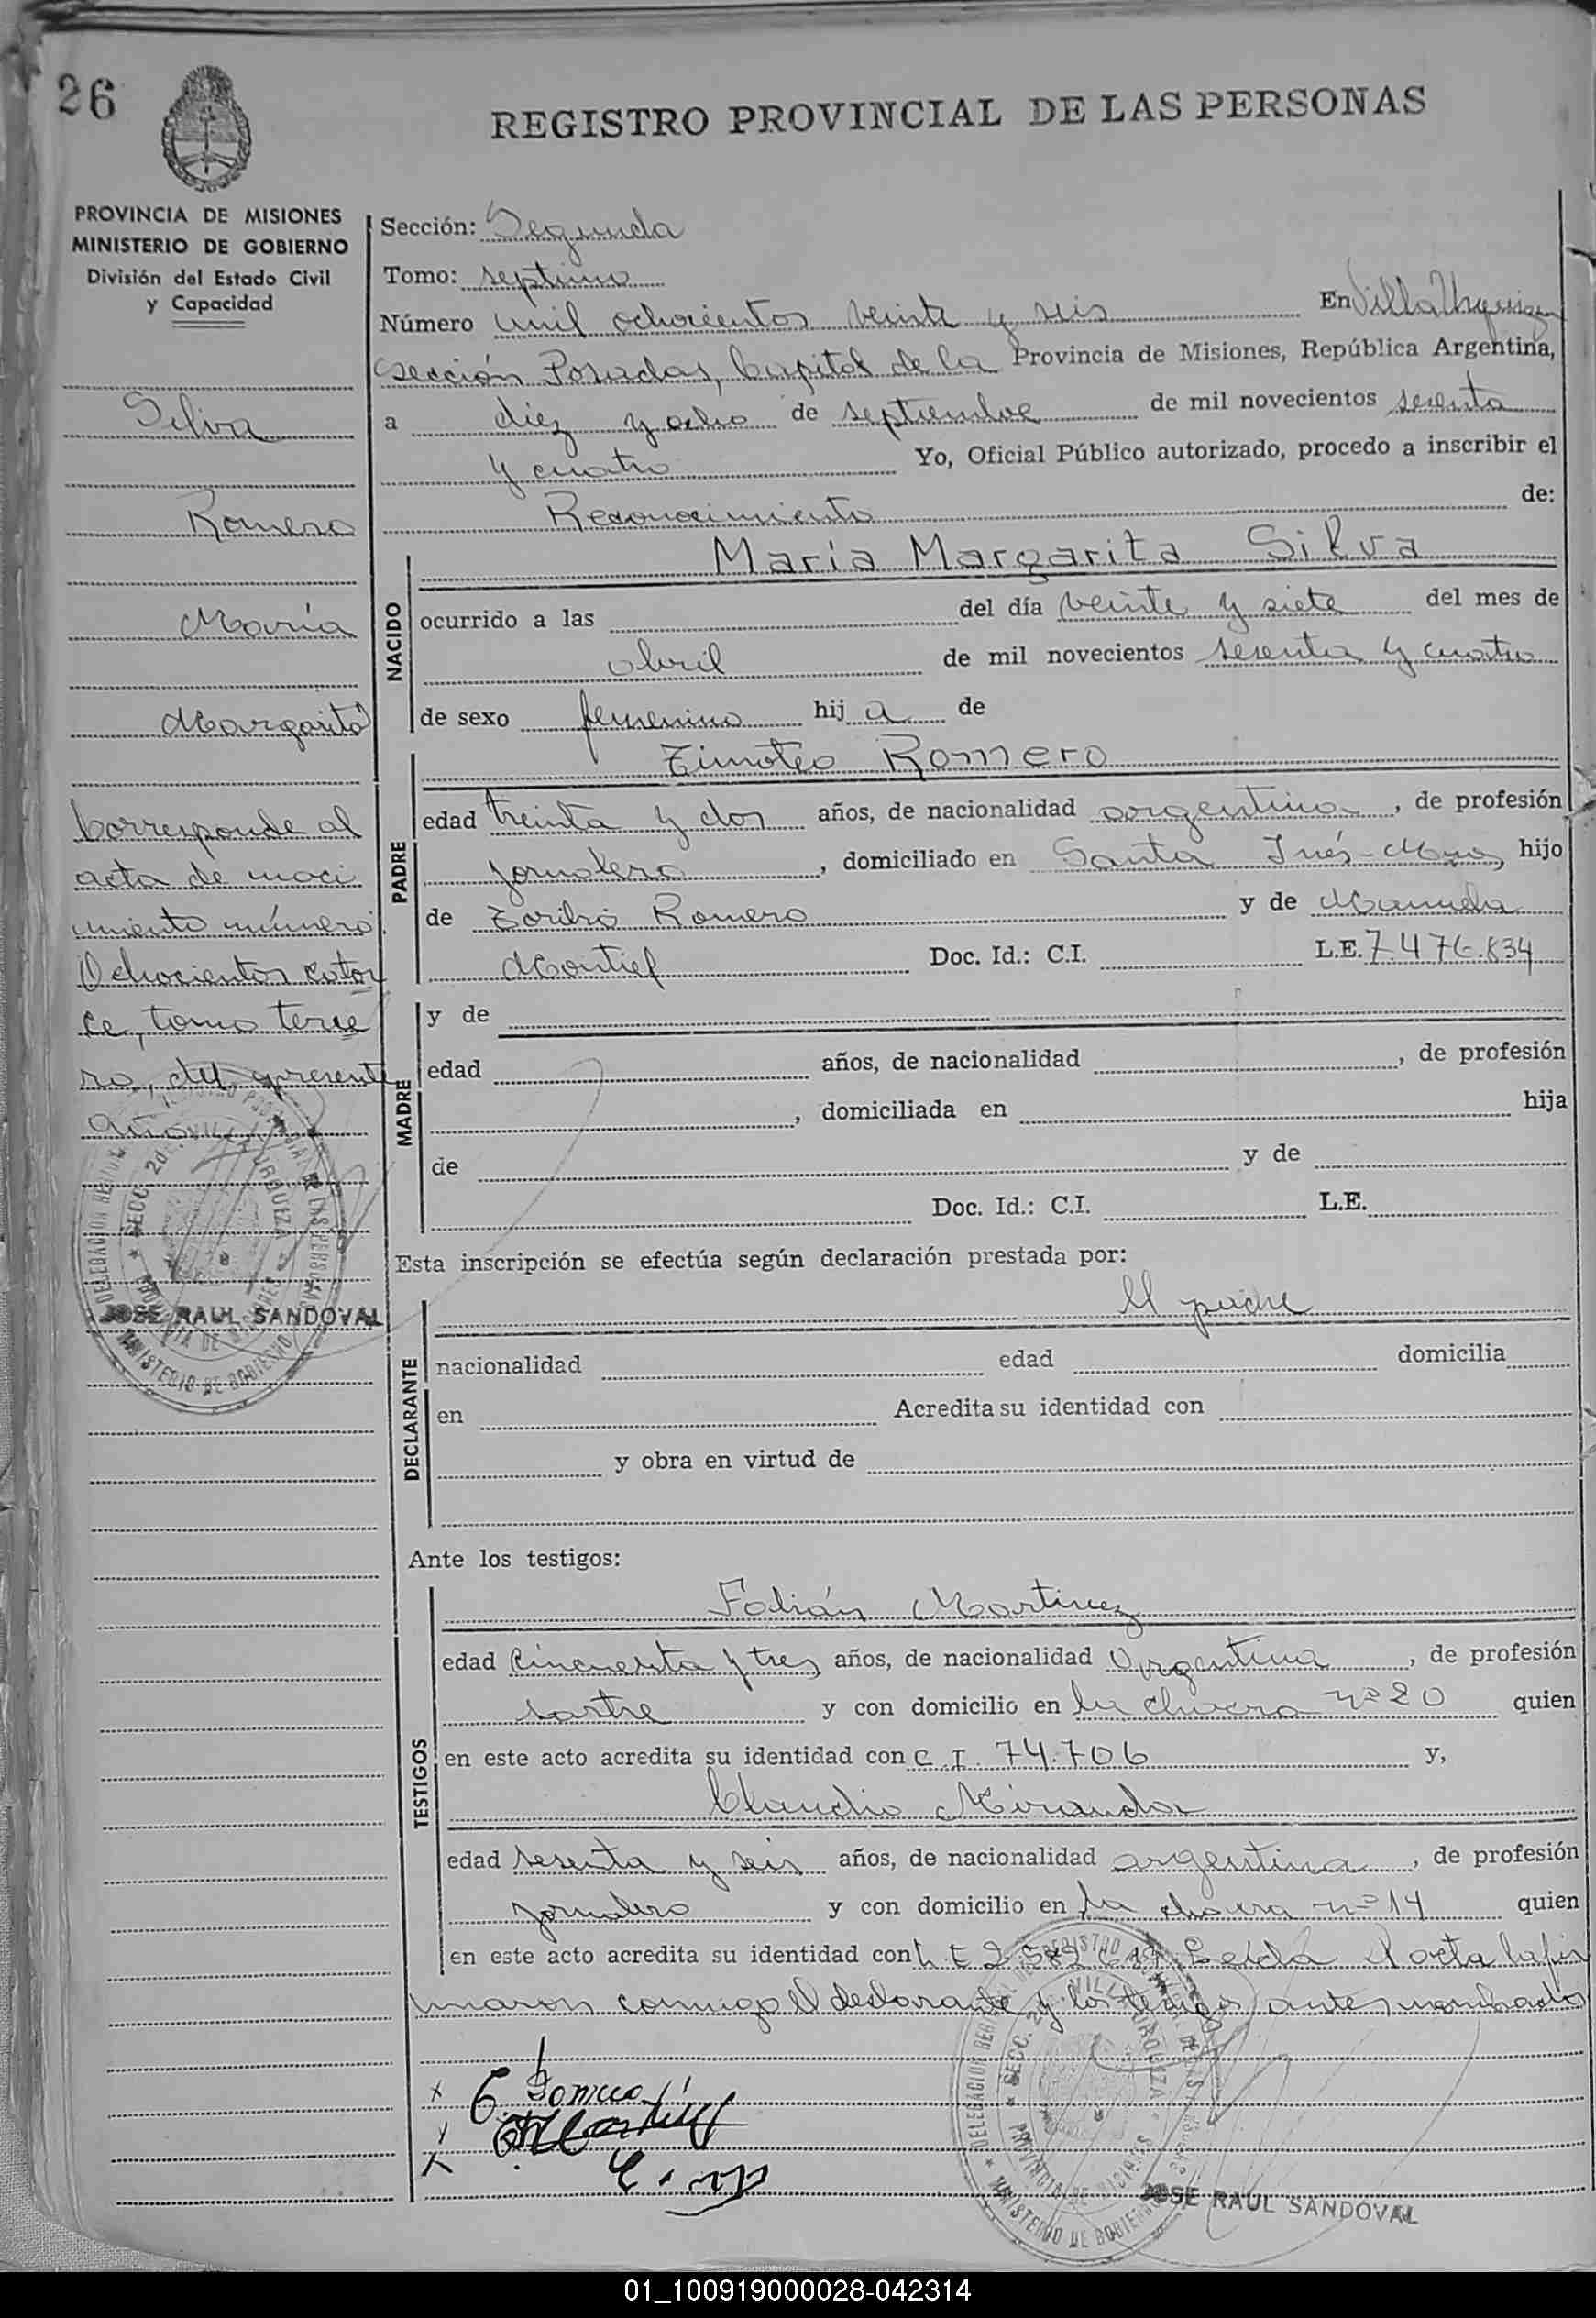 26
REGISTRO PROVINCIAL DE LAS PERSONAS
PROVINCIA DE MISIONES
MINISTERIO DE GOBIERNO
División del Estado Civil
y Capacidad
Silva
Romero
María
Margarita
Corresponde al
acta de naci
miento número
Ochocientos cator
ce, tomo terce
ro, del presente
año
JOSE RAUL SANDOVAL
Sección: Segunda
Tomo: septimo
Número mil ochocientos veinte y seis En Villa Urquiza
sección Posadas, Capital de la Provincia de Misiones, República Argentina,
a diez y ocho de septiembre de mil novecientos sesenta
y cuatro Yo, Oficial Público autorizado, procedo a inscribir el
Reconocimiento de:
NACIDO
María Margarita Silva
ocurrido a las del día veinte y siete del mes de
abril de mil novecientos sesenta y cuatro
de sexo femenino hij a de
PADRE
Timoteo Romero
edad treinta y dos años, de nacionalidad argentina, de profesión
jornalero, domiciliado en Santa Inés-Mnes, hijo
de Toribio Romero y de Manuela
Montiel Doc. Id.: C.I. L.E. 7.476.834
MADRE
y de
edad años, de nacionalidad , de profesión
, domiciliada en hija
de y de
Doc. Id.: C.I. L.E.
Esta inscripción se efectúa según declaración prestada por:
DECLARANTE
El padre
nacionalidad edad domicilia
en Acredita su identidad con
y obra en virtud de
Ante los testigos:
TESTIGOS
Fabián Martinez
edad Cincuenta y tres años, de nacionalidad Argentina, de profesión
sastre y con domicilio en la chacra nº 20 quien
en este acto acredita su identidad con C.I. 74.706 y,
Claudio Miranda
edad sesenta y seis años, de nacionalidad argentina, de profesión
jornalero y con domicilio en la chacra nº 14 quien
en este acto acredita su identidad con L.E. Leída el acta la fir
maron conmigo el declarante y los testigos antes nombrados
JOSE RAUL SANDOVAL
01_100919000028-042314